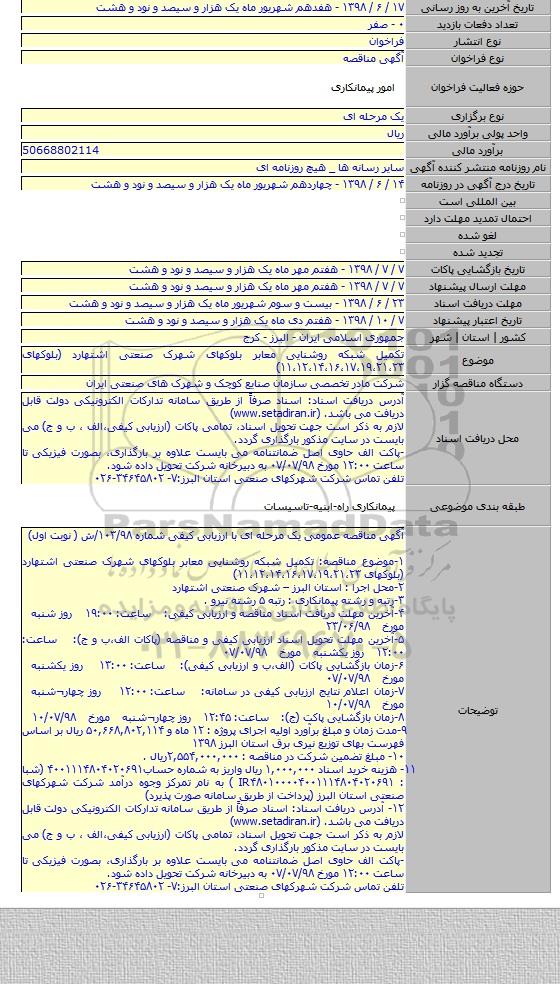 تاریخ آخرین به روز رسانی ۱۷ / ۶ / ۱۳۹۸ - هفدهم شهریور ماه یک هزار و سیصد و نود و هشت
تعداد دفعات بازدید ۰ - صفر
نوع انتشار فراخوان
نوع فراخوان آگهی مناقصه
حوزه فعالیت فراخوان امور پیمانکاری
نوع برگزاری یک مرحله ای
واحد پولی برآورد مالی ریال
برآورد مالی 50668802114
نام روزنامه منتشر کننده آگهی سایر رسانه ها _ هیچ روزنامه ای
تاریخ درج آگهی در روزنامه ۱۴ / ۶ / ۱۳۹۸ - چهاردهم شهریور ماه یک هزار و سیصد و نود و هشت
بین المللی است
احتمال تمدید مهلت دارد
لغو شده
تجدید شده
تاریخ بازگشایی پاکات ۷ / ۷ / ۱۳۹۸ - هفتم مهر ماه یک هزار و سیصد و نود و هشت
مهلت ارسال پیشنهاد ۷ / ۷ / ۱۳۹۸ - هفتم مهر ماه یک هزار و سیصد و نود و هشت
مهلت دریافت اسناد ۲۳ / ۶ / ۱۳۹۸ - بیست و سوم شهریور ماه یک هزار و سیصد و نود و هشت
تاریخ اعتبار پیشنهاد ۷ / ۱۰ / ۱۳۹۸ - هفتم دی ماه یک هزار و سیصد و نود و هشت
کشور | استان | شهر جمهوری اسلامی ایران - البرز - کرج
موضوع تکمیل شبکه روشنایی معابر بلوکهای شهرک صنعتی اشتهارد (بلوکهای
۱۱،۱۲،۱۴،۱۶،۱۷،۱۹،۲۱،۲۳)
دستگاه مناقصه گزار شرکت مادر تخصصی سازمان صنایع کوچک و شهرک های صنعتی ایران
محل دریافت اسناد آدرس دریافت اسناد: اسناد صرفاً از طریق سامانه تدارکات الکترونیکی دولت قابل
دریافت می باشد. (www.setadiran.ir)
لازم به ذکر است جهت تحویل اسناد، تمامی پاکات (ارزیابی کیفی،الف ، ب و ج) می
بایست در سایت مذکور بارگذاری گردد.
-پاکت الف حاوی اصل ضمانتنامه می بایست علاوه بر بارگذاری، بصورت فیزیکی تا
ساعت ۱۲:۰۰ مورخ ۰۷/۰۷/۹۸ به دبیرخانه شرکت تحویل داده شود.
تلفن تماس شرکت شهرکهای صنعتی استان البرز:۷- ۳۴۶۴۵۸۰۲-۰۲۶
طبقه بندی موضوعی پیمانکاری راه-ابنیه-تاسیسات
ParsNamadData
توضیحات آگهی مناقصه عمومی یک مرحله ای با ارزیابی کیفی شماره ۱۰۲/۹۸/ش ( نوبت اول)
۱-موضوع مناقصه: تکمیل شبکه روشنایی معابر بلوکهای شهرک صنعتی اشتهارد
(بلوکهای ۱۱،۱۲،۱۴،۱۶،۱۷،۱۹،۲۱،۲۳)
۲-محل اجرا : استان البرز – شهرک صنعتی اشتهارد
۳-رتبه و رشته پیمانکاری : رتبه ۵ رشته نیرو .
۴-آخرین مهلت دریافت اسناد مناقصه و ارزیابی کیفی: ساعت: ۱۹:۰۰ روز شنبه
مورخ ۲۳/۰۶/۹۸
۵-آخرین مهلت تحویل اسناد ارزیابی کیفی و مناقصه (پاکات الف،ب و ج): ساعت:
۱۲:۰۰ روز یکشنبه مورخ ۰۷/۰۷/۹۸
۶-زمان بازگشایی پاکات (الف،ب و ارزیابی کیفی): ساعت: ۱۳:۰۰ روز یکشنبه
مورخ ۰۷/۰۷/۹۸
۷-زمان اعلام نتایج ارزیابی کیفی در سامانه: ساعت: ۱۲:۰۰ روز چهار¬شنبه
مورخ ۱۰/۰۷/۹۸
۸-زمان بازگشایی پاکت (ج): ساعت: ۱۲:۴۵ روز چهار¬شنبه مورخ ۱۰/۰۷/۹۸
۹-مدت زمان و مبلغ برآورد اولیه اجرای پروژه : ۱۲ ماه و ۵۰,۶۶۸,۸۰۲,۱۱۴ ریال بر اساس
فهرست بهای توزیع نیروی برق استان البرز ۱۳۹۸
۱۰- مبلغ تضمین شرکت در مناقصه : ۲,۵۵۴,۰۰۰,۰۰۰ریال .
۱۱- هزینه خرید اسناد ۱,۰۰۰,۰۰۰ ریال واریز به شماره حساب۴۰۰۱۱۱۴۸۰۴۰۲۰۶۹۱ (شبا
: IR۴۸۰۱۰۰۰۰۴۰۰۱۱۱۴۸۰۴۰۲۰۶۹۱ ) به نام تمرکز وجوه درآمد شرکت شهرکهای
صنعتی استان البرز (پرداخت از طریق سامانه صورت پذیرد)
۱۲- آدرس دریافت اسناد: اسناد صرفاً از طریق سامانه تدارکات الکترونیکی دولت قابل
دریافت می باشد. (www.setadiran.ir)
لازم به ذکر است جهت تحویل اسناد، تمامی پاکات (ارزیابی کیفی،الف ، ب و ج) می
بایست در سایت مذکور بارگذاری گردد.
-پاکت الف حاوی اصل ضمانتنامه می بایست علاوه بر بارگذاری، بصورت فیزیکی تا
ساعت ۱۲:۰۰ مورخ ۰۷/۰۷/۹۸ به دبیرخانه شرکت تحویل داده شود.
تلفن تماس شرکت شهرکهای صنعتی استان البرز:۷- ۳۴۶۴۵۸۰۲-۰۲۶